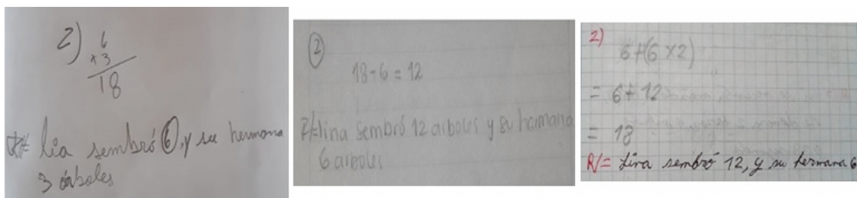 2) 6
×3
18
R/= lia sembró 6, y su hermana
3 árboles
2
18-6=12
R/= lina sembró 12 arboles y su hermana
6 arboles
2)
6+(6×2)
= 6+12
= 18
R/= Lina sembró 12, y su hermana 6